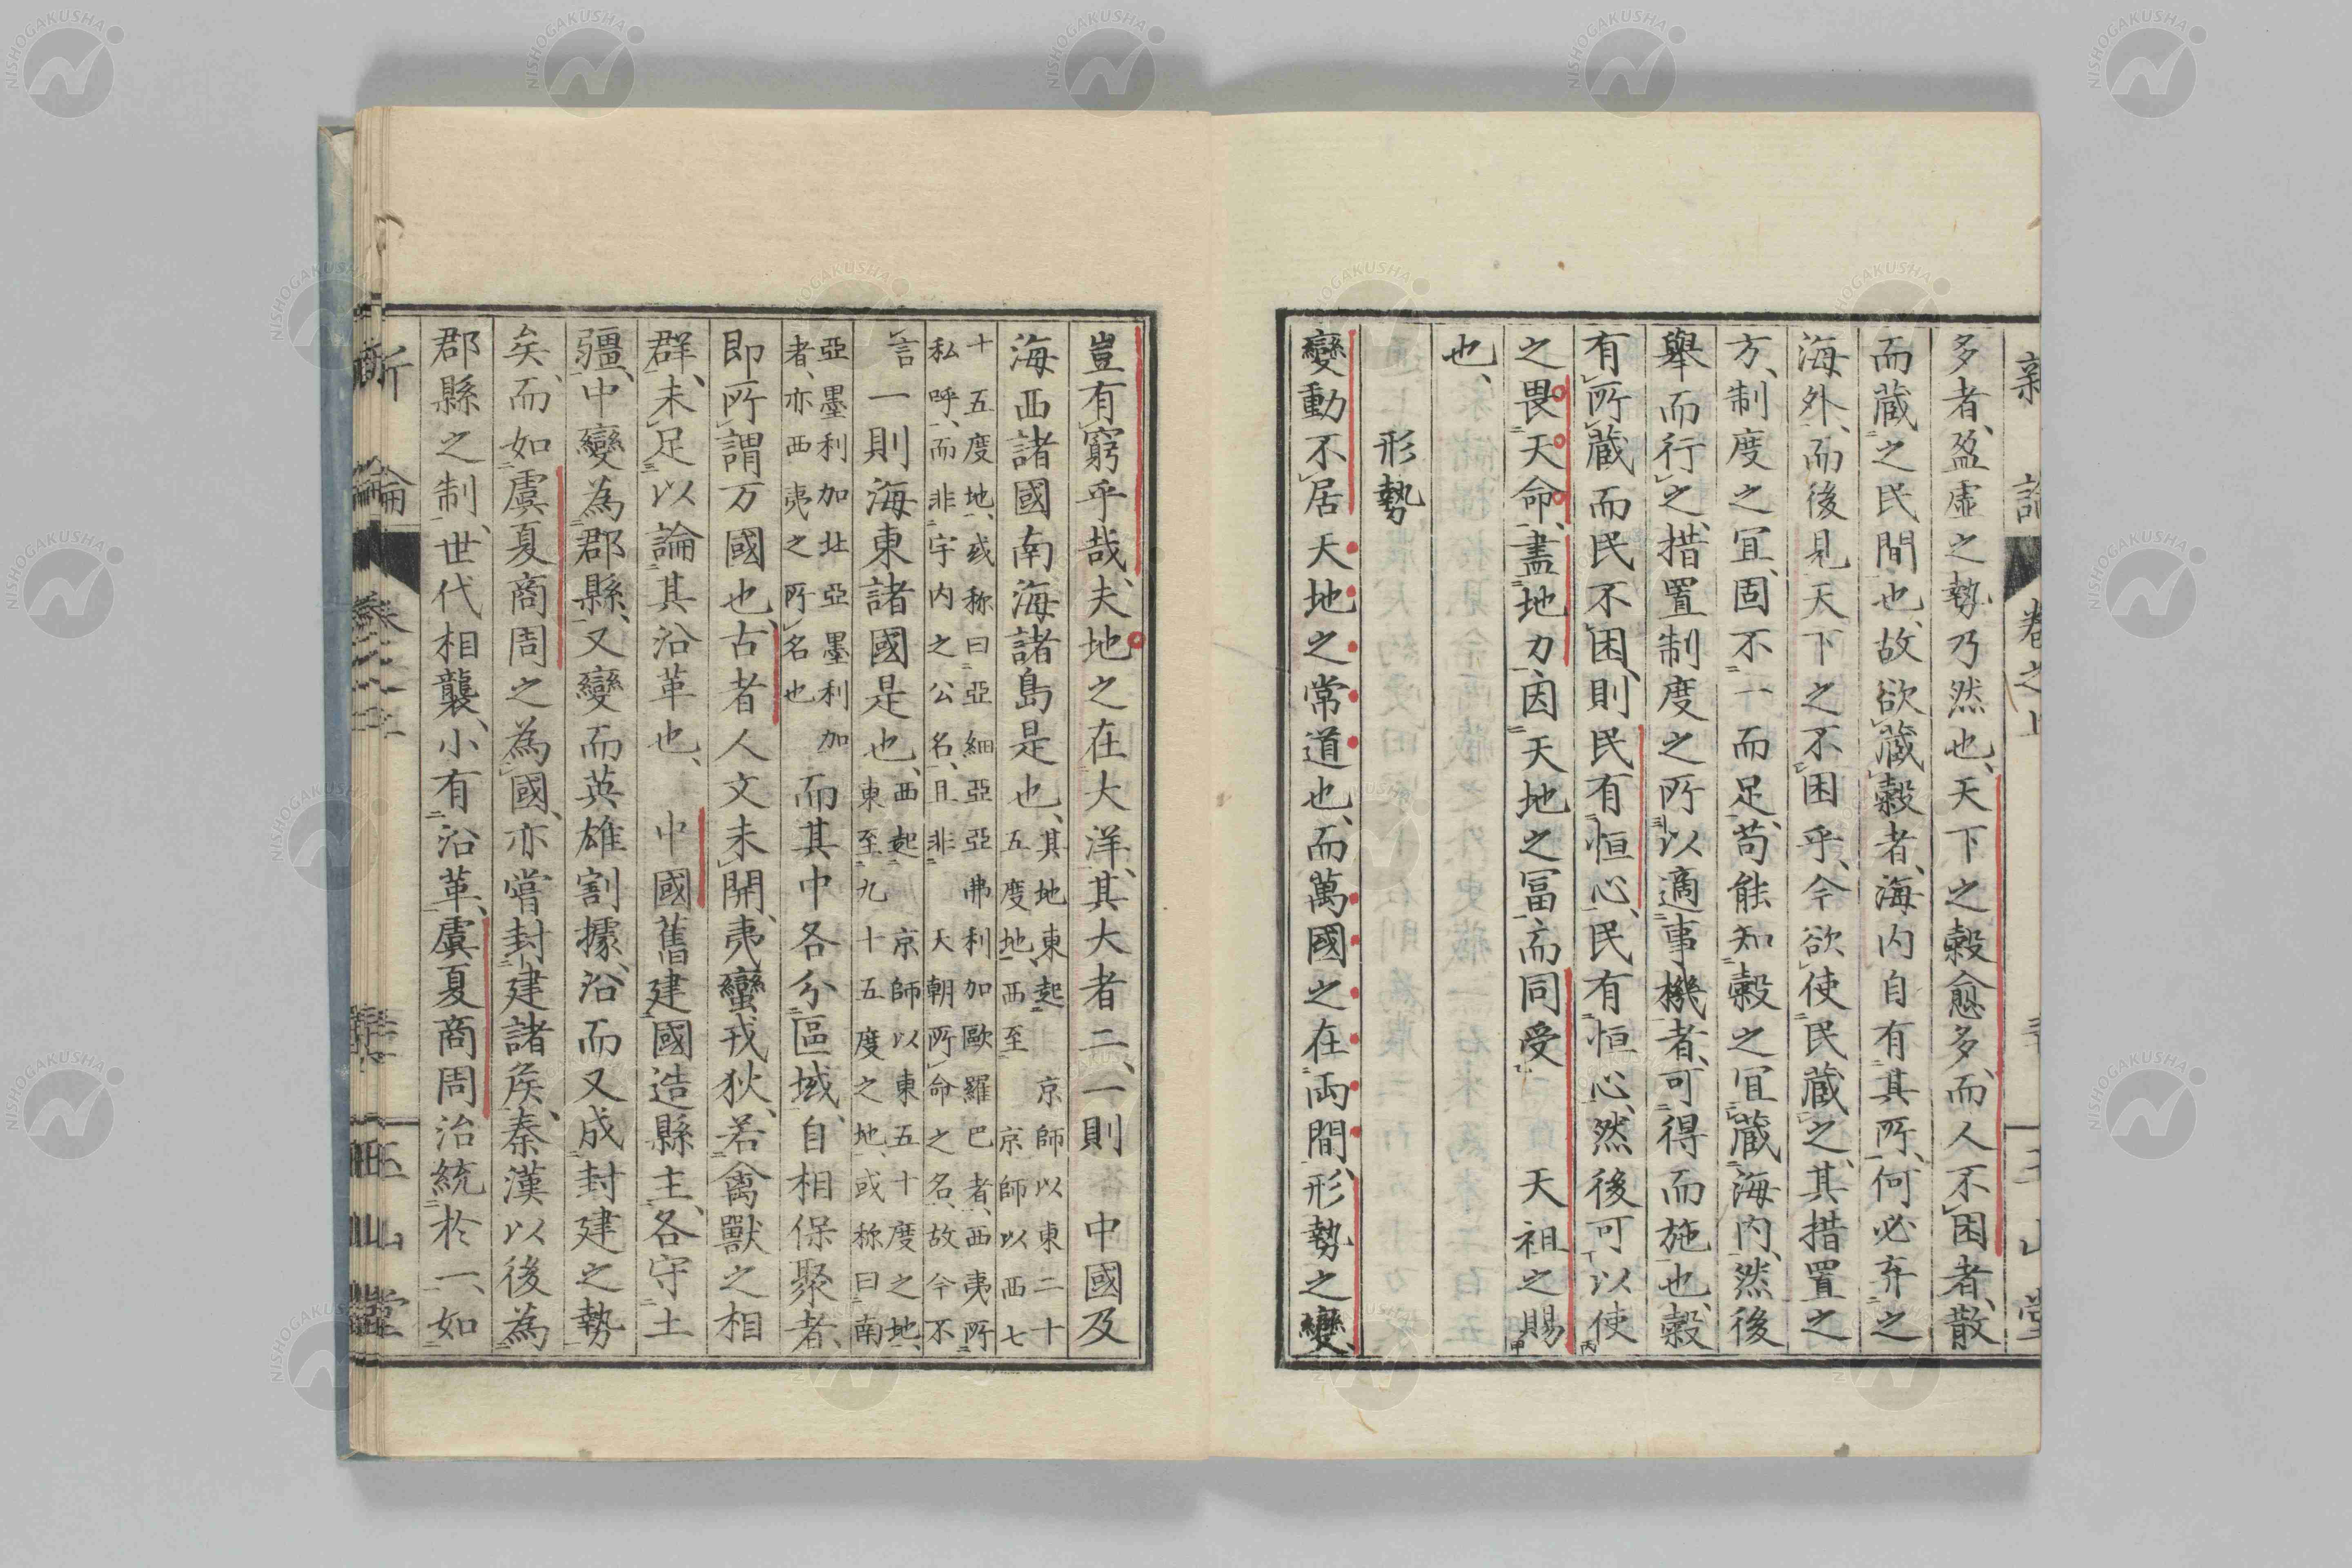 多者、盈虛之勢乃然也、天下之穀愈多、而人不困者、散
而藏之民間也、故欲藏穀者、海内自有其所、何必弃之
海外、而後見天下之不困乎、今欲使民藏之、其措置之
方、制度之宜、固不一而足、苟能知穀之宜藏海内、然後
舉而行之、措置制度之所以適事機者、可得而施也、穀
有所藏而民不困、則民有恒心、民有恒心、然後可以使
之畏天命、盡地力、因天地之冨、而同受 天祖之賜
也、
形勢
變動不居天地之常道也、而萬國之在兩間、形勢之變、
豈有窮乎哉、夫地之在大洋、其大者二、一則 中國及
海西諸國南海諸島是也、其地東起 京師以東二十
五度地、西至 京師以西七
十五度地、或称曰亞細亞亞弗利加歐羅巴者、西夷所
私呼、而非宇内之公名、且非 天朝所命之名、故今不
言
一則海東諸國是也、西起 京師以東五十度之地、
東至九十五度之地、或称曰南
亞墨利加北亞墨利加
者、亦西夷之所名也
而其中各分區域、自相保聚者、
即所謂万國也、古者人文未開、夷蠻戎狄、若禽獸之相
群、未足以論其沿革也、 中國舊建國造縣主、各守土
疆、中變為郡縣、又變而英雄割據、沿而又成封建之勢
矣、而如虞夏商周之為國、亦嘗封建諸侯、秦漢以後為
郡縣之制、世代相襲、小有沿革、虞夏商周治統於一、如